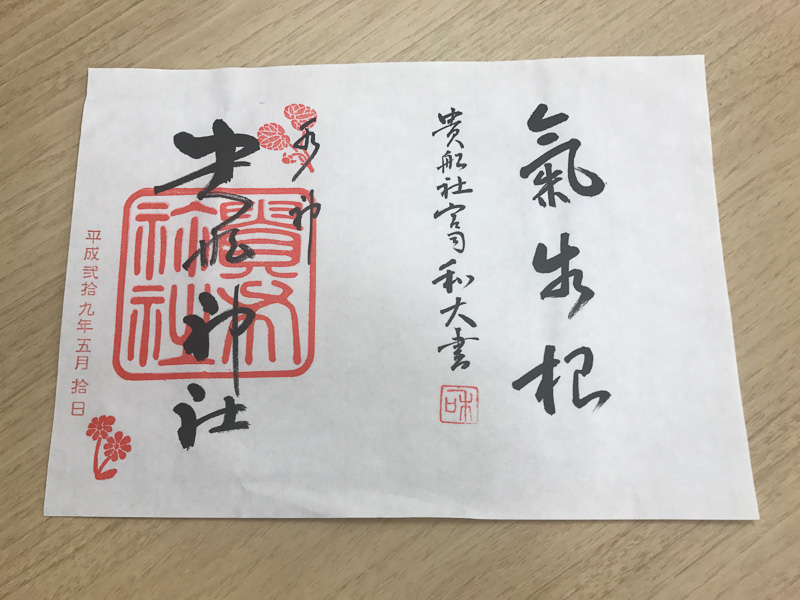 氣生根
貴船社宮司和大書
和
水神
貴船神社
貴船神社
平成弐拾九年五月拾日